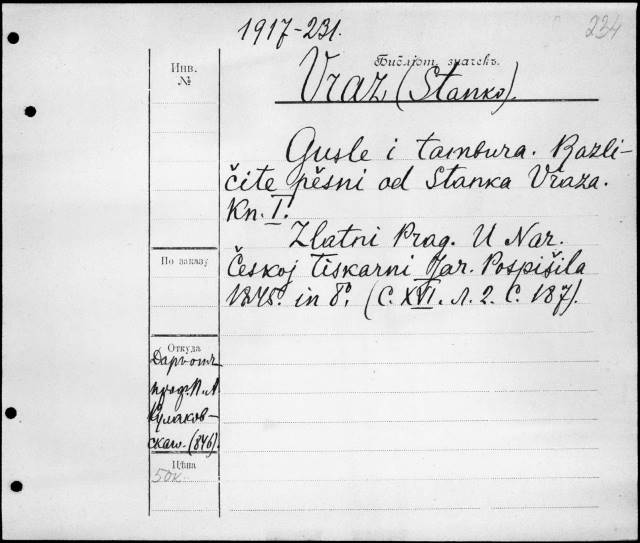 1917-231.
234
Инв.
№
Библіот. значекъ.
Vraz (Stanko).
Gusle i tambura. Razli-
čite pěsni od Stanka Vraza.
Kn. I.
Zlatni Prag. U Nar.
Českoj tiskarni Jar. Pospišila
1845. in 8°. (С. XVI. л. 2. С. 187).
По заказу
Откуда
Даръ отъ
проф. П. А.
Кулаков-
скаго. (846).
Цѣна
50к.